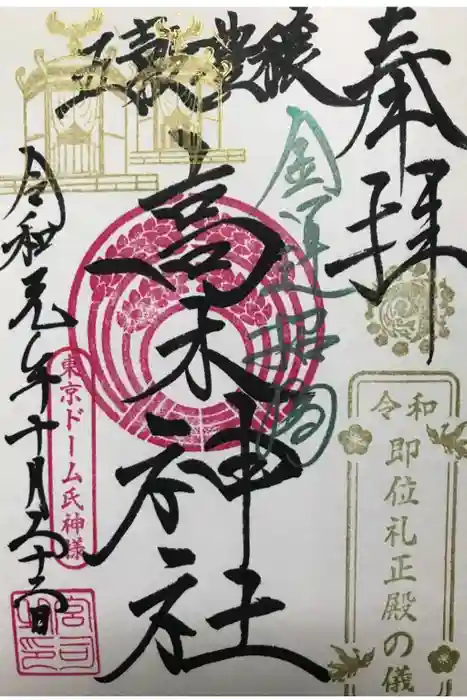 奉拝
五穀豊穣
金運招福
高木神社
令和
即位礼正殿の儀
東京ドーム氏神様
令和元年十月二十二日